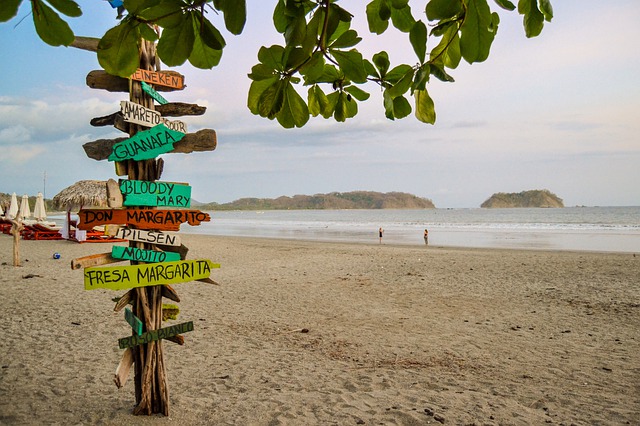 HEINEKEN
AMARETO SOUR
GUANACA
BLOODY
MARY
DON MARGARITO
PILSEN
MOJITO
FRESA MARGARITA